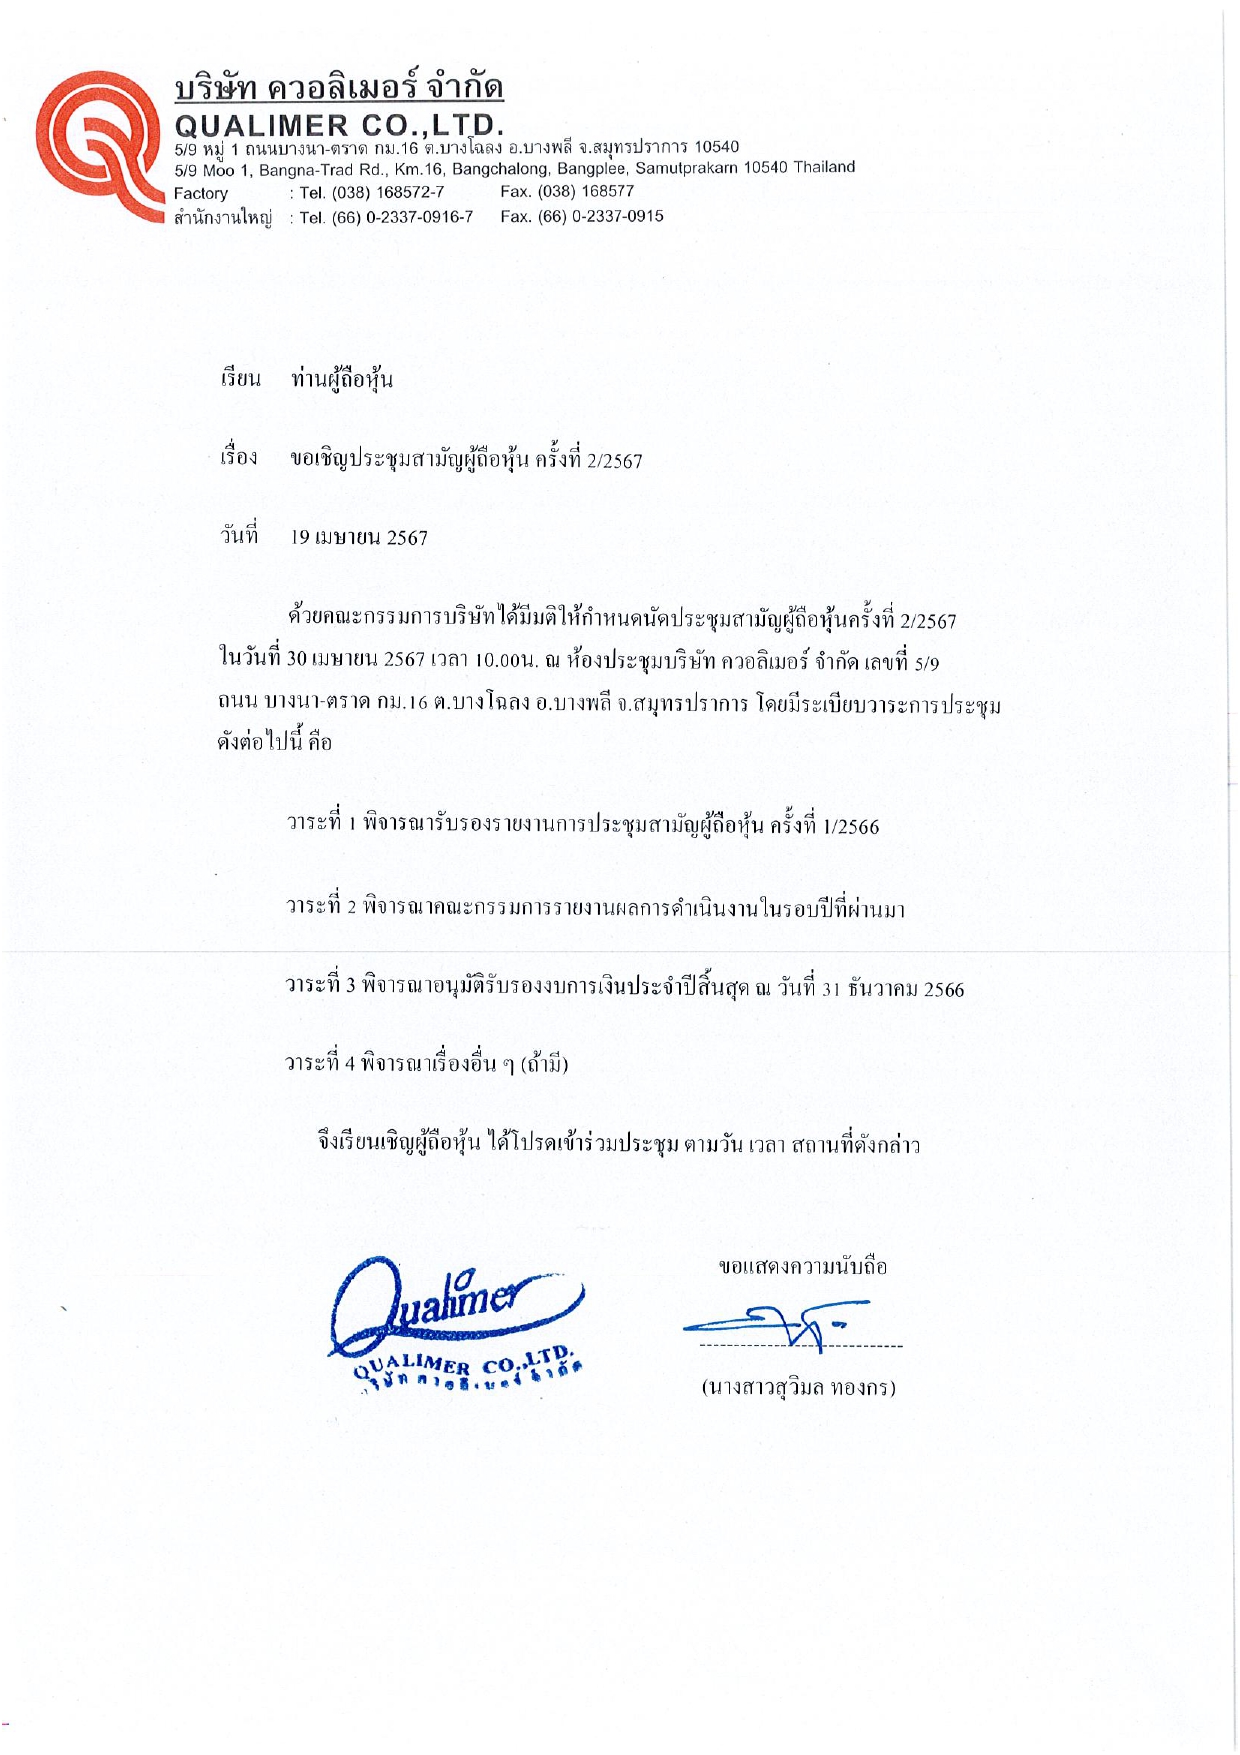 บริษัท ควอลิเมอร์ จำกัด
QUALIMER CO.,LTD.
5/9 หมู่ 1 ถนนบางนา-ตราด กม.16 ต.บางโฉลง อ.บางพลี จ.สมุทรปราการ 10540
5/9 Moo 1, Bangna-Trad Rd., Km.16, Bangchalong, Bangplee, Samutprakarn 10540 Thailand
Factory : Tel. (038) 168572-7 Fax. (038) 168577
สำนักงานใหญ่ : Tel. (66) 0-2337-0916-7 Fax. (66) 0-2337-0915
เรียน ท่านผู้ถือหุ้น
เรื่อง ขอเชิญประชุมสามัญผู้ถือหุ้น ครั้งที่ 2/2567
วันที่ 19 เมษายน 2567
ด้วยคณะกรรมการบริษัทได้มีมติให้กำหนดนัดประชุมสามัญผู้ถือหุ้นครั้งที่ 2/2567
ในวันที่ 30 เมษายน 2567 เวลา 10.00น. ณ ห้องประชุมบริษัท ควอลิเมอร์ จำกัด เลขที่ 5/9
ถนน บางนา-ตราด กม.16 ต.บางโฉลง อ.บางพลี จ.สมุทรปราการ โดยมีระเบียบวาระการประชุม
ดังต่อไปนี้ คือ
วาระที่ 1 พิจารณารับรองรายงานการประชุมสามัญผู้ถือหุ้น ครั้งที่ 1/2566
วาระที่ 2 พิจารณาคณะกรรมการรายงานผลการดำเนินงานในรอบปีที่ผ่านมา
วาระที่ 3 พิจารณาอนุมัติรับรองงบการเงินประจำปีสิ้นสุด ณ วันที่ 31 ธันวาคม 2566
วาระที่ 4 พิจารณาเรื่องอื่น ๆ (ถ้ามี)
จึงเรียนเชิญผู้ถือหุ้น ได้โปรดเข้าร่วมประชุม ตามวัน เวลา สถานที่ดังกล่าว
ขอแสดงความนับถือ
Qualimer
QUALIMER CO.,LTD.
บริษัท ควอลิเมอร์ จำกัด
(นางสาวสุวิมล ทองกร)